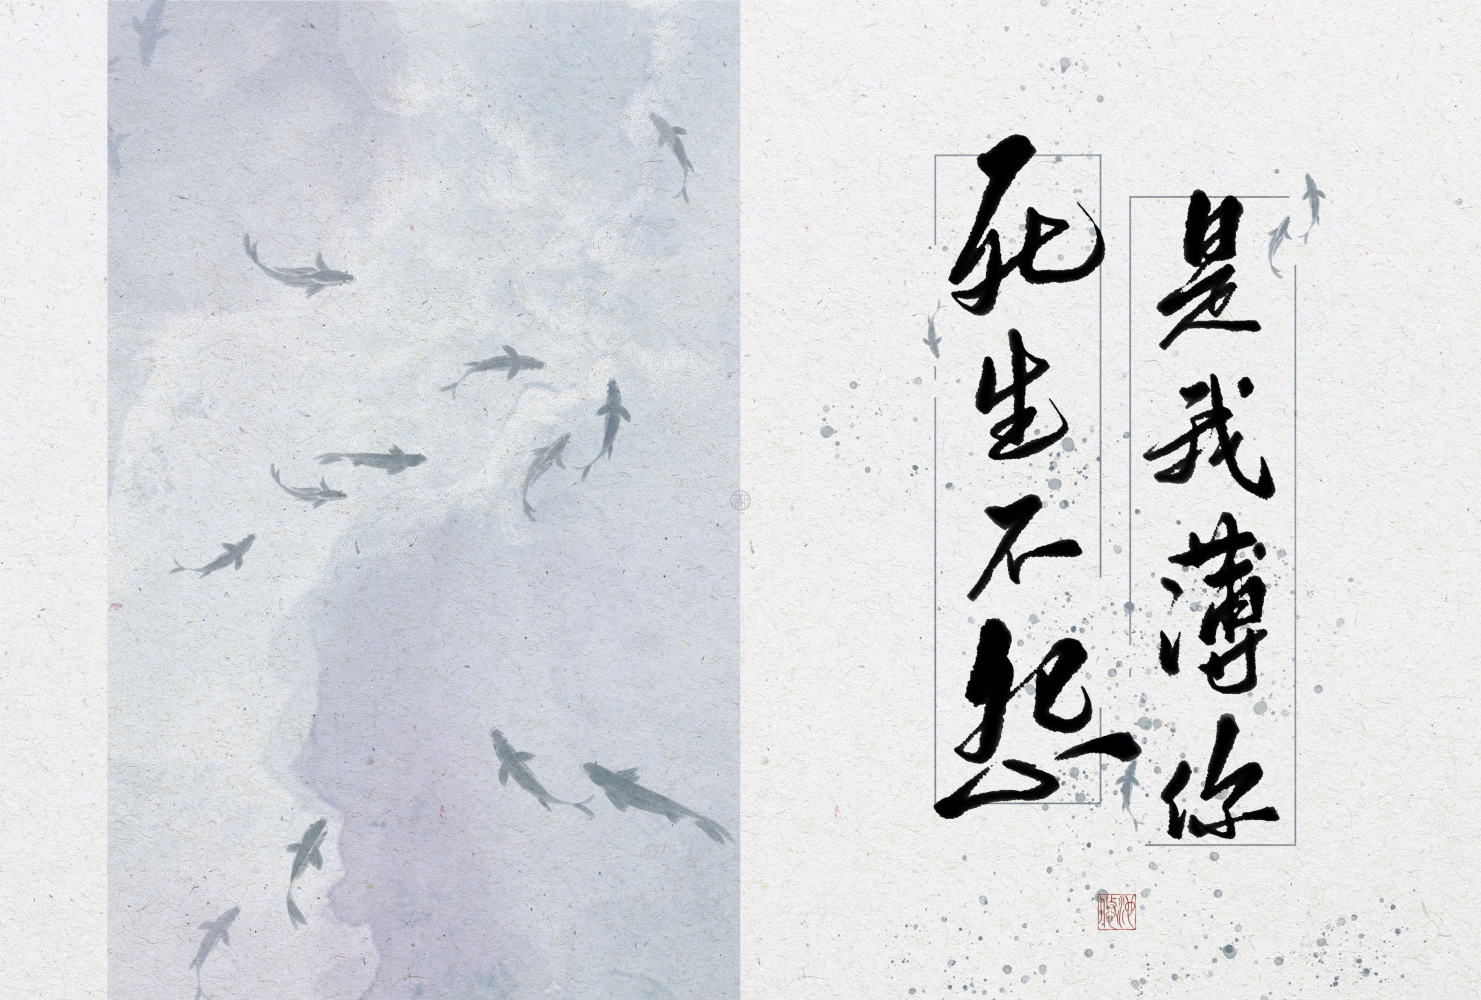 是我薄你
死生不怨